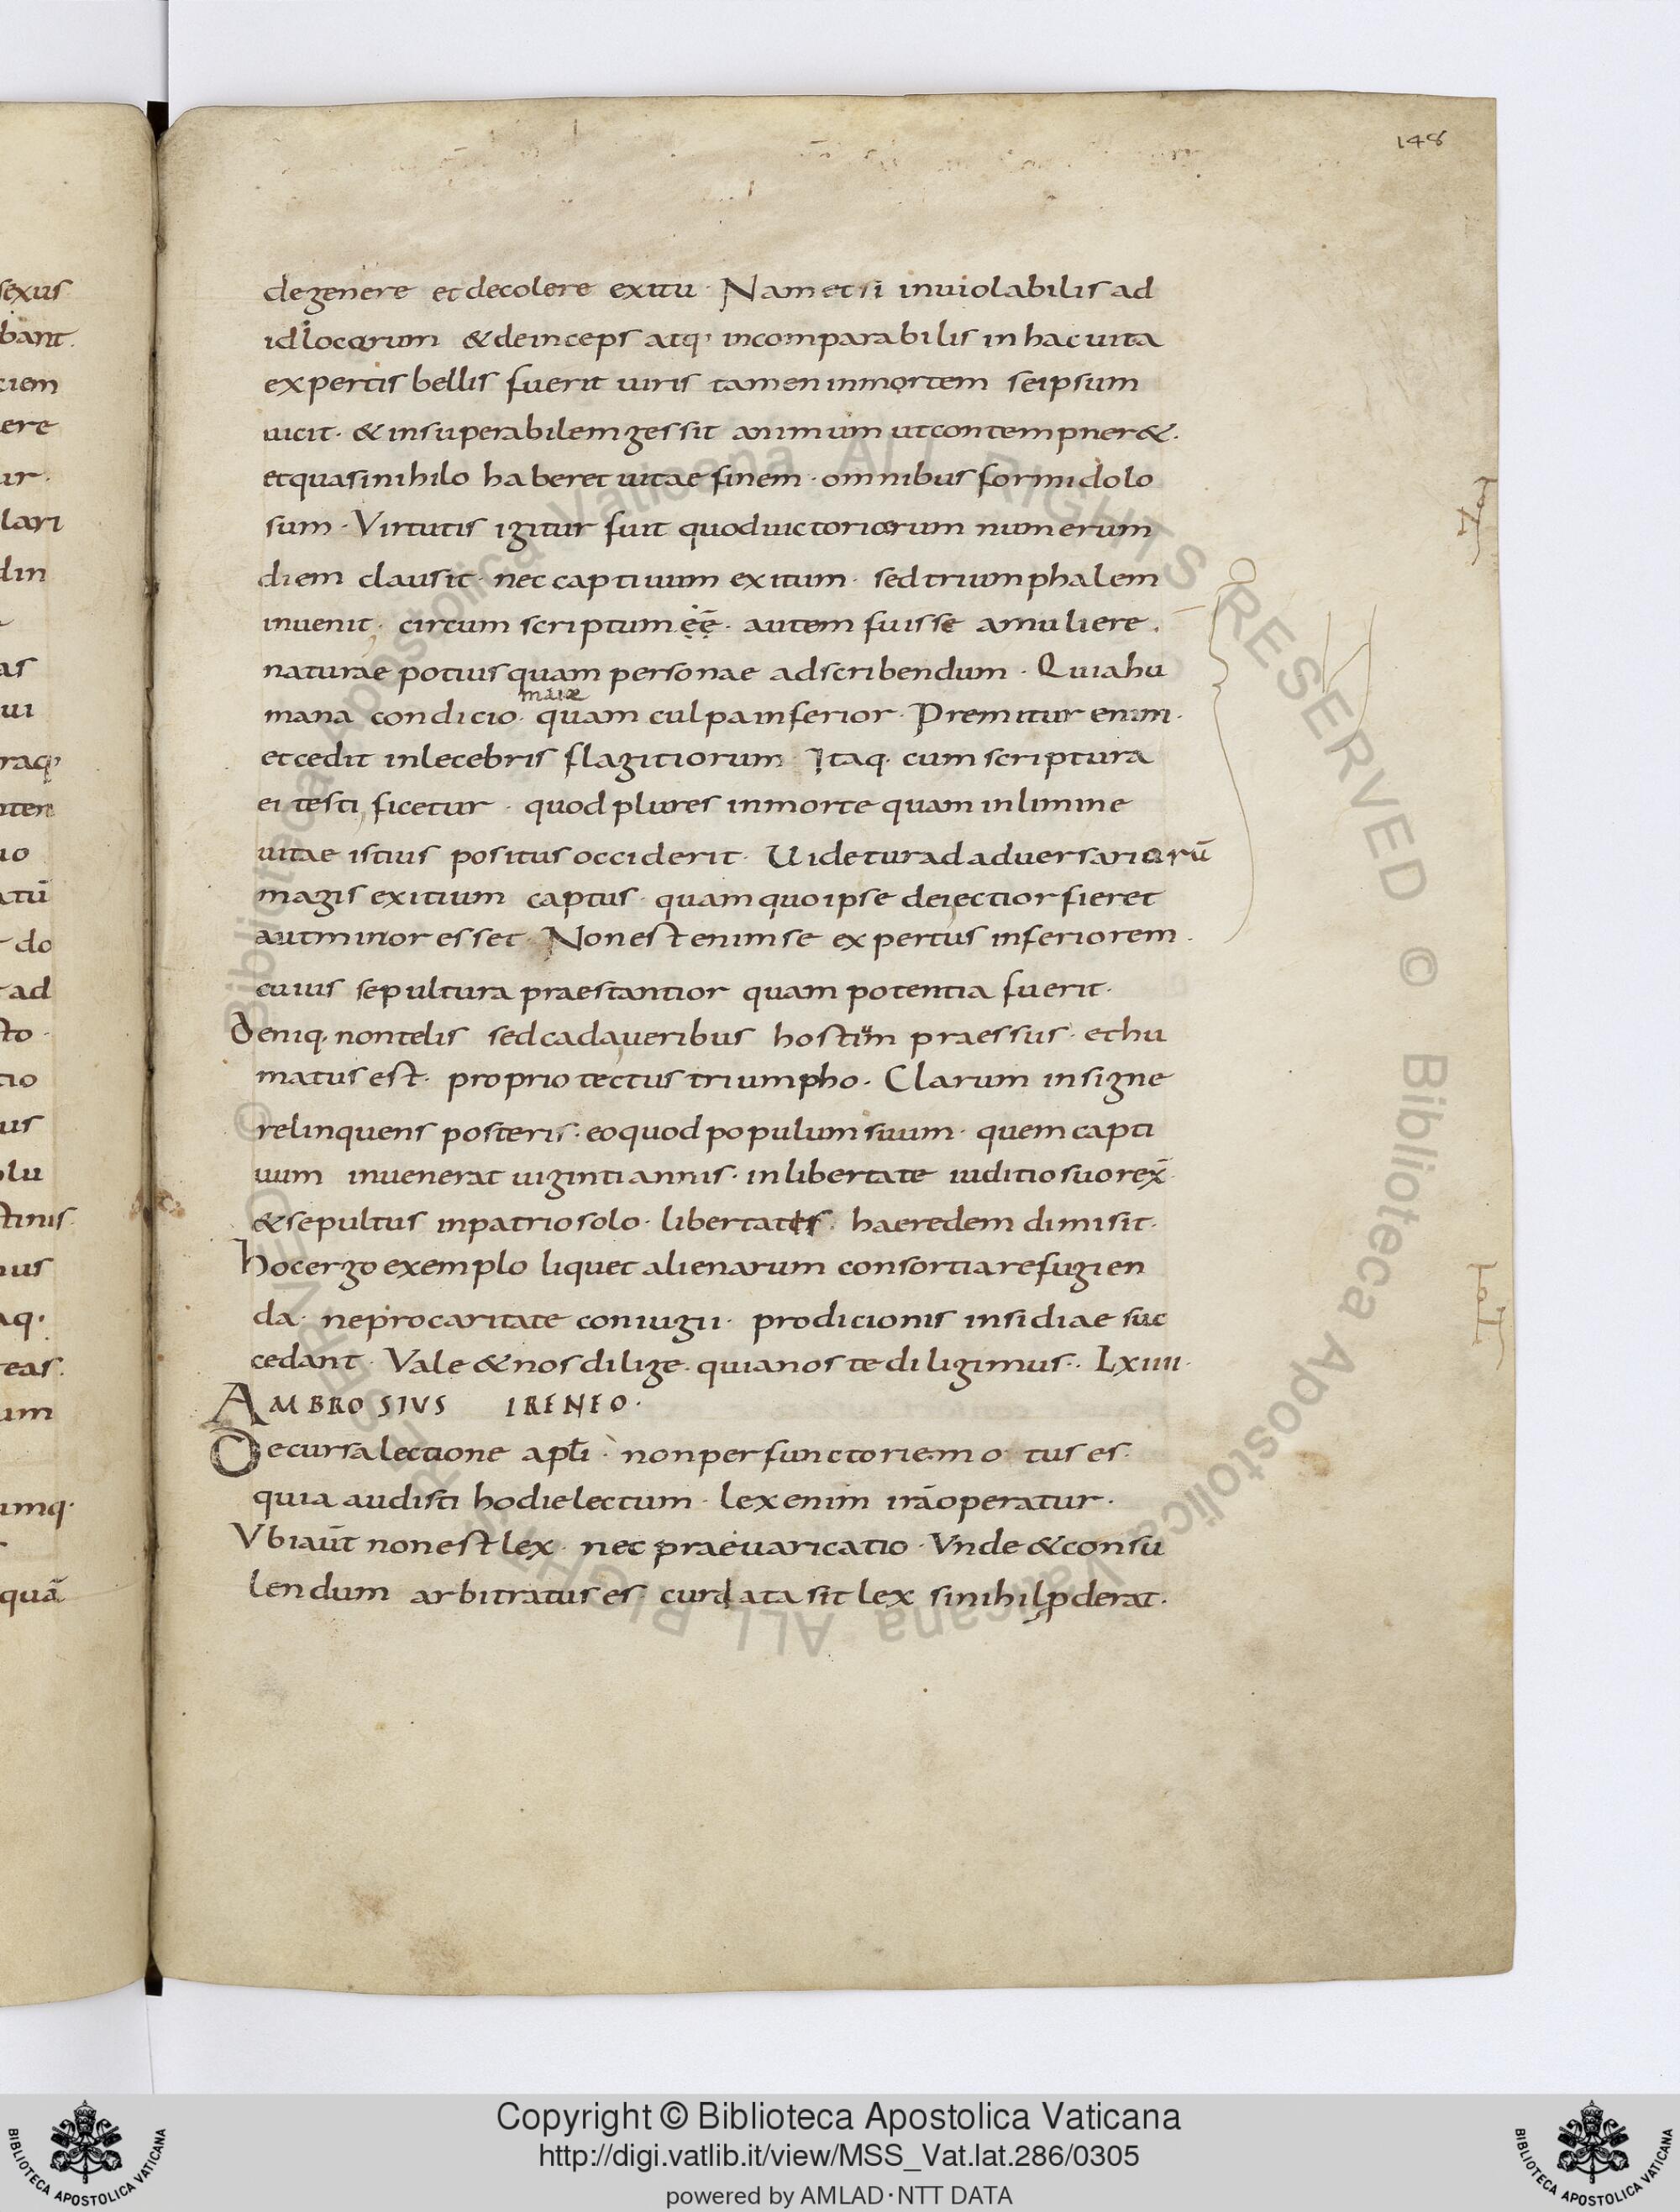 148
degenere et decolere exitu · Nam et si inuiolabilis ad
id locorum & deinceps atq; incomparabilis in hac uita
expertis bellis fuerit uiris tamen in mortem se ipsum
uicit · & insuperabilem gessit animum ut contempner& ·
et quasi nihilo haberet uitae finem · omnibus formidolo
sum · Virtutis igitur fuit quod uictoriarum numerum
diem clausit · nec captiuum exitum · sed triumphalem
inuenit · circum scriptum ẹ̄ẹ̄ · autem fuisse a muliere ·
naturae potius quam personae adscribendum · Quia hu
maiæ
mana condicio · quam culpa inferior · Premitur enim ·
et cedit inlecebris flagitiorum · Itaq· cum scriptura
ei testificetur · quod plures in morte quam in limine
uitae istius positus occiderit · Uidetur ad aduersariorū
magis exitium captus · quam quo ipse deiectior fieret
aut minor esset · Non est enim se expertus inferiorem ·
cuius sepultura praestantior quam potentia fuerit ·
deniq· non telis sed cadaueribus hostium praessus · et hu
matus est · proprio tectus triumpho · Clarum insigne
relinquens posteris · eo quod populum suum · quem capti
uum inuenerat uiginti annis · in libertate iuditio suo rex̄
& sepultus in patrio solo · libertatis · haeredem dimisit ·
hoc ergo exemplo liquet alienarum consortia refugien
da · ne pro caritate coniugii · prodicionis insidiae suc
cedant · Vale & nos dilige · quia nos te diligimus · Lxiiii ·
AMBROSIVS IRENEO ·
Decursa lectione apłi · non perfunctorie mo tus es ·
quia audisti hodie lectum · lex enim irā operatur ·
Vbi aūt non est lex · nec praeuaricatio · Vnde & consu
lendum arbitratus es · cur data sit lex si nihil ꝓderat ·
sexus
bant ·
ciem
ere
ur ·
lari
din
as
ui
raq;
nten
uo
atū
do
ad
sto ·
tio
us
olu
stinis ·
nus
aq ·
reas ·
um
umq ·
quā
© Biblioteca Apostolica Vaticana ALL RIGHTS RESERVED © Biblioteca Apostolica Vaticana ALL RIGHTS RESERVED
Copyright © Biblioteca Apostolica Vaticana
http://digi.vatlib.it/view/MSS_Vat.lat.286/0305
powered by AMLAD·NTT DATA
BIBLIOTECA APOSTOLICA VATICANA
BIBLIOTECA APOSTOLICA VATICANA